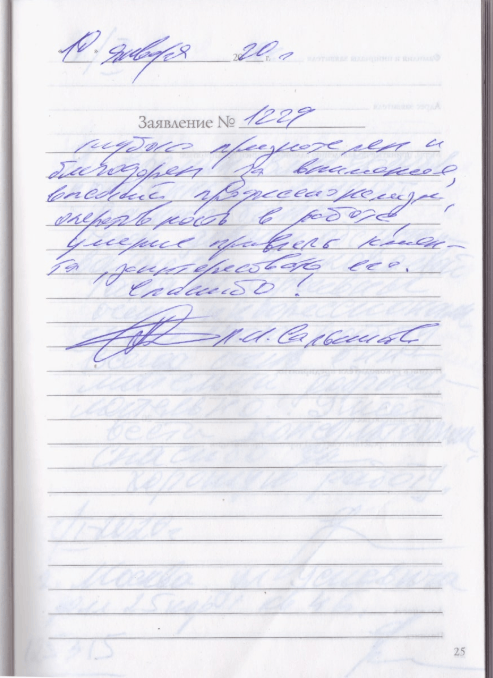 10 января 2020 г
Заявление № 1229
Глубоко признателен и
благодарен за внимание,
высокий профессионализм,
оперативность в работе,
умение привлечь клиен-
та, заинтересовать его.
Спасибо!
25